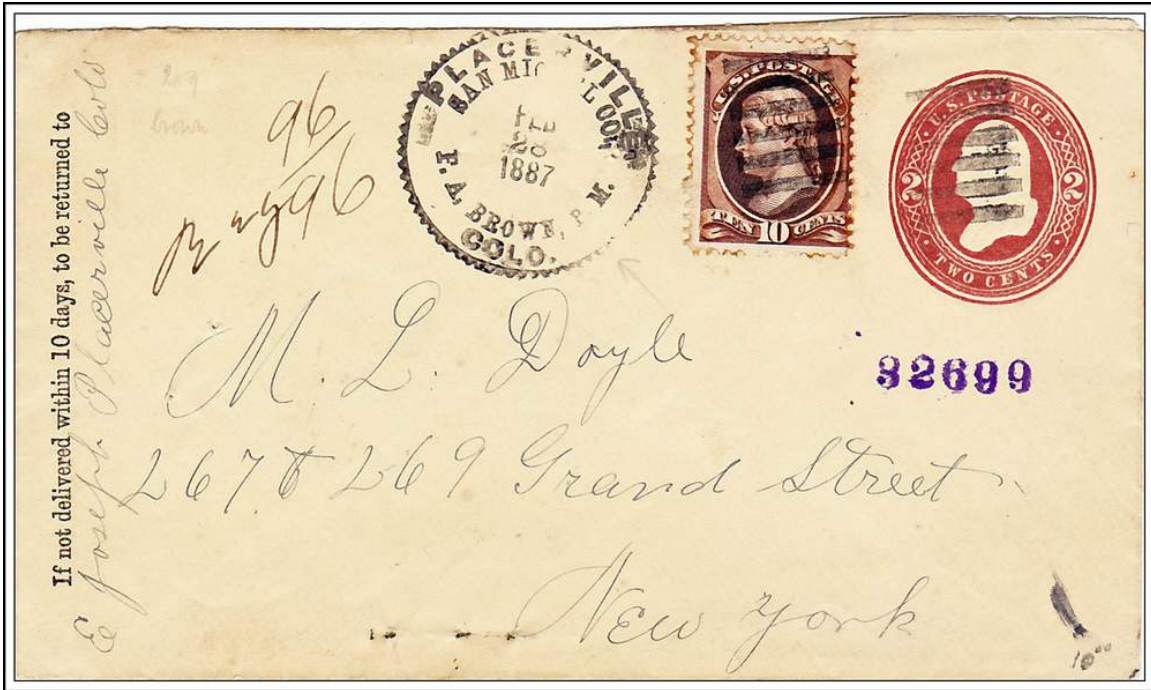 If not delivered within 10 days, to be returned to
E Joseph Placerville Colo
209
Brown
96
96
PLACERVILLE
SAN MIG L COO
FEB
1887
F. A. BROWN, P. M.
COLO.
U.S. POSTAGE
TEN 10 CENTS
U.S. POSTAGE
2 2
TWO CENTS
32699
M. L. Doyle
267 & 269 Grand Street
New York
10⁰⁰